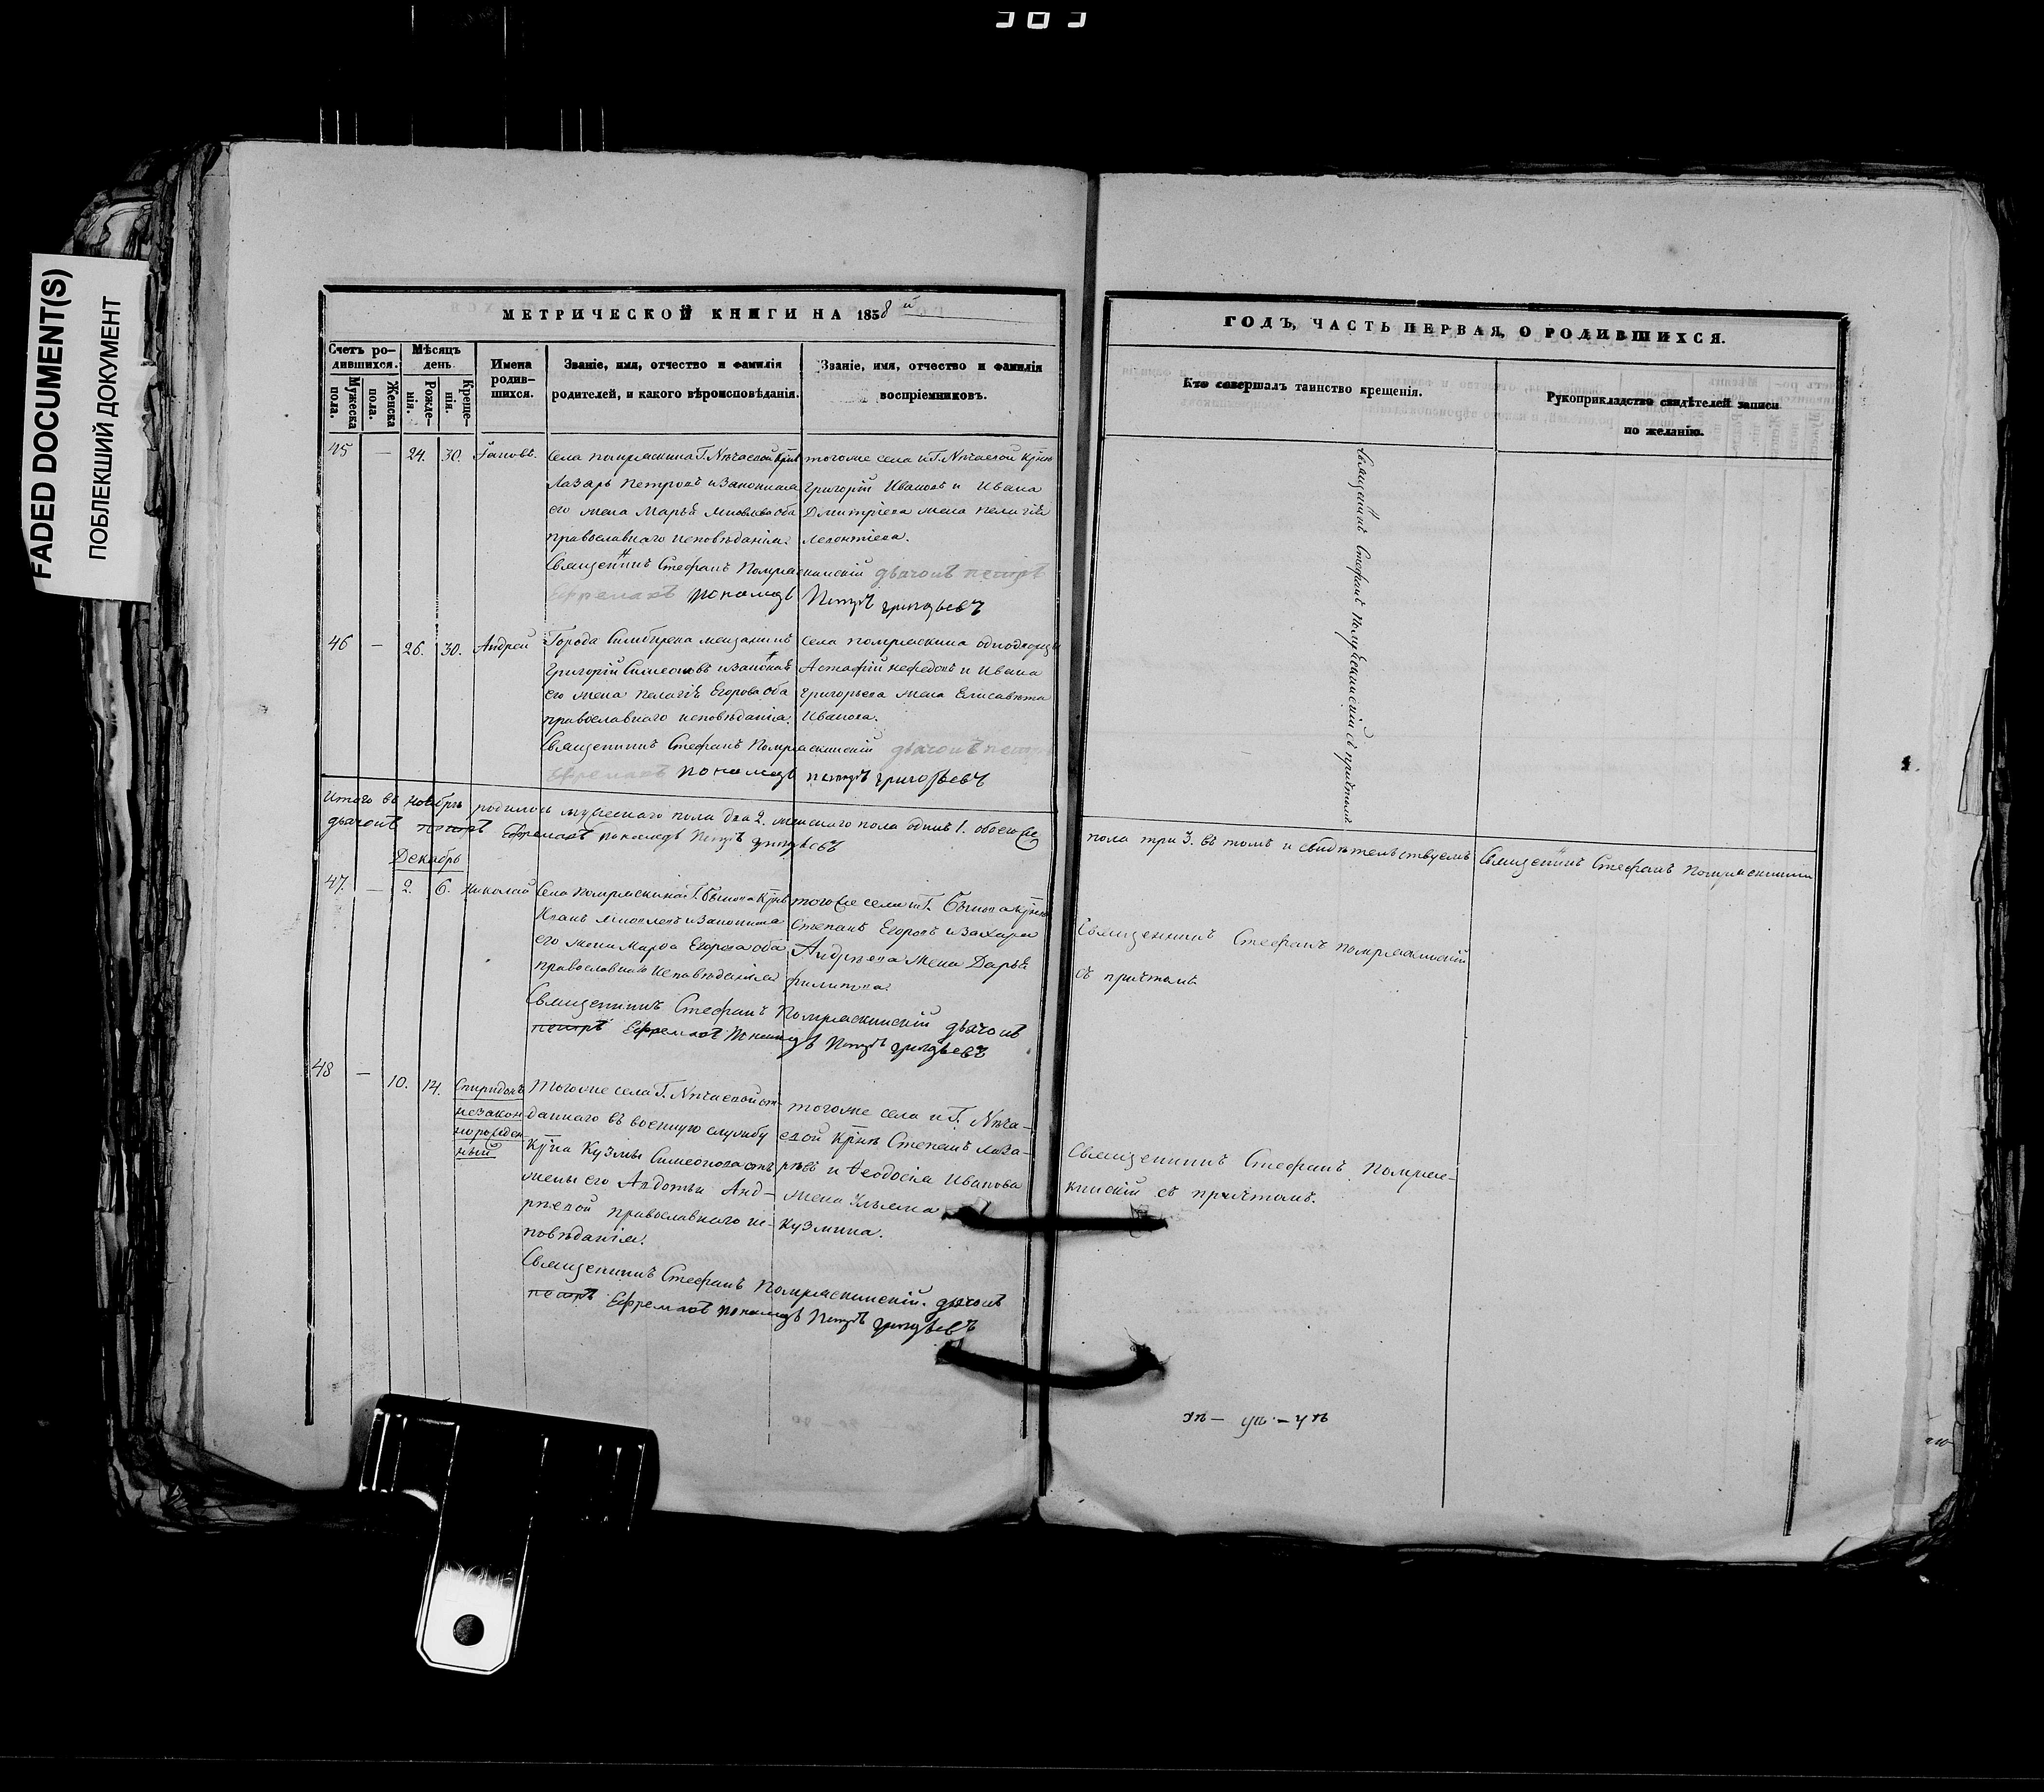 FADED DOCUMENT(S)
ПОБЛЕКШИЙ ДОКУМЕНТ
МЕТРИЧЕСКОЙ КНИГИ НА 1858й
Счетъ ро-
дившихся.
Мужеска
пола.
Женска
пола.
Мѣсяцъ
день
Рожде-
нія.
Креще-
нія.
Имена
родив-
шихся.
Званіе, имя, отчество и фамилія
родителей, и какого вѣроисповѣданія.
Званіе, имя, отчество и фамилія
воспріемниковъ.
24. 30. Іаковъ.
села Помряскина Г. Нѣчаевой крнъ
Лазарь Петровъ и законная
его жена Марья оба
православнаго исповѣданія.
тогоже села и Г. Нѣчаевой крнъ
Григорій Ивановъ и Ивана
Дмитріева жена Пелагія
Леонтіева.
Священникъ Стефанъ Помряскинскій дьячокъ Петръ
Ефремовъ пономарь Петръ Григорьевъ
46 — 26. 30. Андрей
Города Симбирска мещанинъ
Григорій Симеоновъ и законная
его жена Пелагія Егорова оба
православнаго исповѣданія.
села Помряскина однодворецъ
Астафій Нефедовъ и Ивана
Григорьева жена Елисавета
Иванова.
Священникъ Стефанъ Помряскинскій дьячокъ Петръ
Ефремовъ пономарь Петръ Григорьевъ
Итого въ ноябрѣ родилось мужескаго пола два 2. женскаго пола одинъ 1. обоего
дьячокъ Петръ Ефремовъ пономарь Петръ Григорьевъ
Декабрь
47. — 2. 6. Николай
Села Помряскина Г. крнъ
его жена Марѳа Егорова оба
православнаго исповѣданія
тогоже села и Г. крнъ
Степанъ Егоровъ и Захара
Андрѣева жена Дарья
Филипова.
Священникъ Стефанъ Помряскинскій дьячокъ
Петръ Ефремовъ пономарь Петръ Григорьевъ
48 — 10. 14. Спиридонъ
незакон-
норожден-
ный
Тогоже села Г. Нѣчаевой от-
даннаго въ военную службу
крна Кузмы Симеонова отъ
жены его Авдотьи Анд-
рѣевой православнаго ис-
повѣданія.
тогоже села и Г. Нѣча-
евой крнъ Степанъ Лаза-
ревъ и Ѳеодосія Иванова
жена Ульяна
Кузмина.
Священникъ Стефанъ Помряскинскій. дьячокъ
Петръ Ефремовъ пономарь Петръ Григорьевъ
ГОДЪ, ЧАСТЬ ПЕРВАЯ, О РОДИВШИХСЯ.
Кто совершалъ таинство крещенія.
Рукоприкладство свидѣтелей записи
по желанію.
Священникъ Стефанъ Помряскинскій съ причтомъ
пола три 3. въ томъ и свидѣтельствуемъ Священникъ Стефанъ Помряскинскій
Священникъ Стефанъ Помряскинскій
съ причтомъ
Священникъ Стефанъ Помряс-
кинскій съ причтомъ.